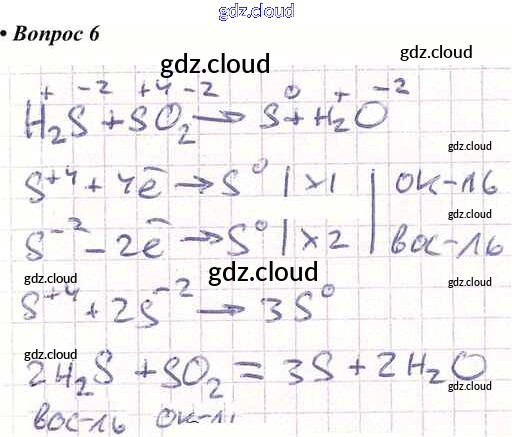 gdz.cloud
• Вопрос 6
gdz.cloud gdz.cloud
+ -2 +4 -2 0 + -2
H₂S + SO₂ → S + H₂O
gdz.cloud
S⁺⁴ + 4ē → S⁰ | ×1 | ок-ль
gdz.cloud
S⁻² - 2ē → S⁰ | ×2 | вос-ль
gdz.cloud gdz.cloud gdz.cloud
S⁺⁴ + 2S⁻² → 3S⁰
gdz.cloud gdz.cloud
2H₂S + SO₂ = 3S + 2H₂O
gdz.cloud
вос-ль